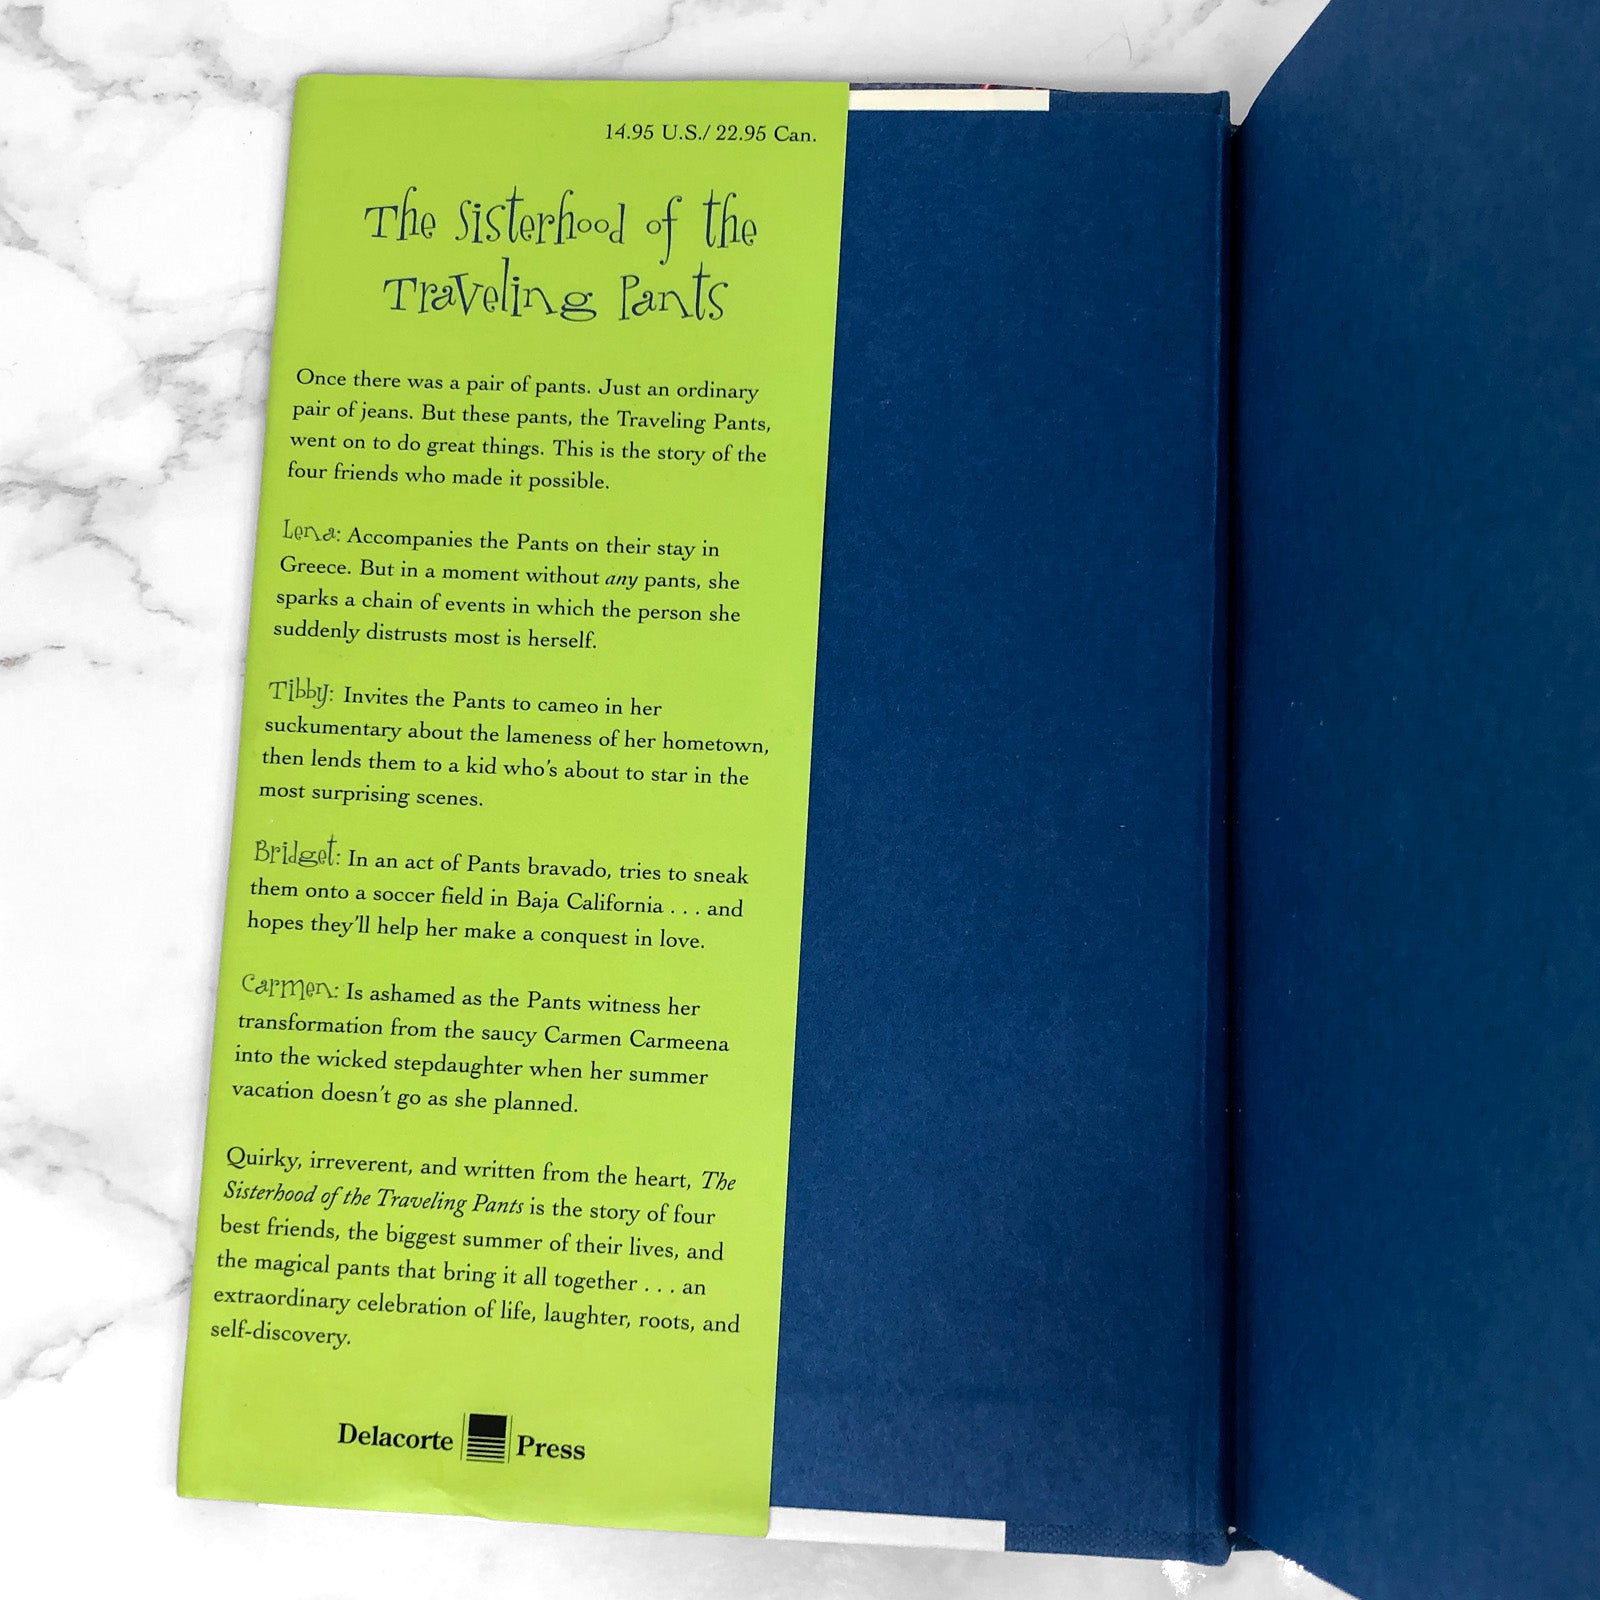 14.95 U.S./ 22.95 Can.
The Sisterhood of the
Traveling Pants
Once there was a pair of pants. Just an ordinary
pair of jeans. But these pants, the Traveling Pants,
went on to do great things. This is the story of the
four friends who made it possible.
Lena: Accompanies the Pants on their stay in
Greece. But in a moment without any pants, she
sparks a chain of events in which the person she
suddenly distrusts most is herself.
Tibby: Invites the Pants to cameo in her
suckumentary about the lameness of her hometown,
then lends them to a kid who's about to star in the
most surprising scenes.
Bridget: In an act of Pants bravado, tries to sneak
them onto a soccer field in Baja California . . . and
hopes they'll help her make a conquest in love.
Carmen: Is ashamed as the Pants witness her
transformation from the saucy Carmen Carmeena
into the wicked stepdaughter when her summer
vacation doesn't go as she planned.
Quirky, irreverent, and written from the heart, The
Sisterhood of the Traveling Pants is the story of four
best friends, the biggest summer of their lives, and
the magical pants that bring it all together . . . an
extraordinary celebration of life, laughter, roots, and
self-discovery.
Delacorte Press